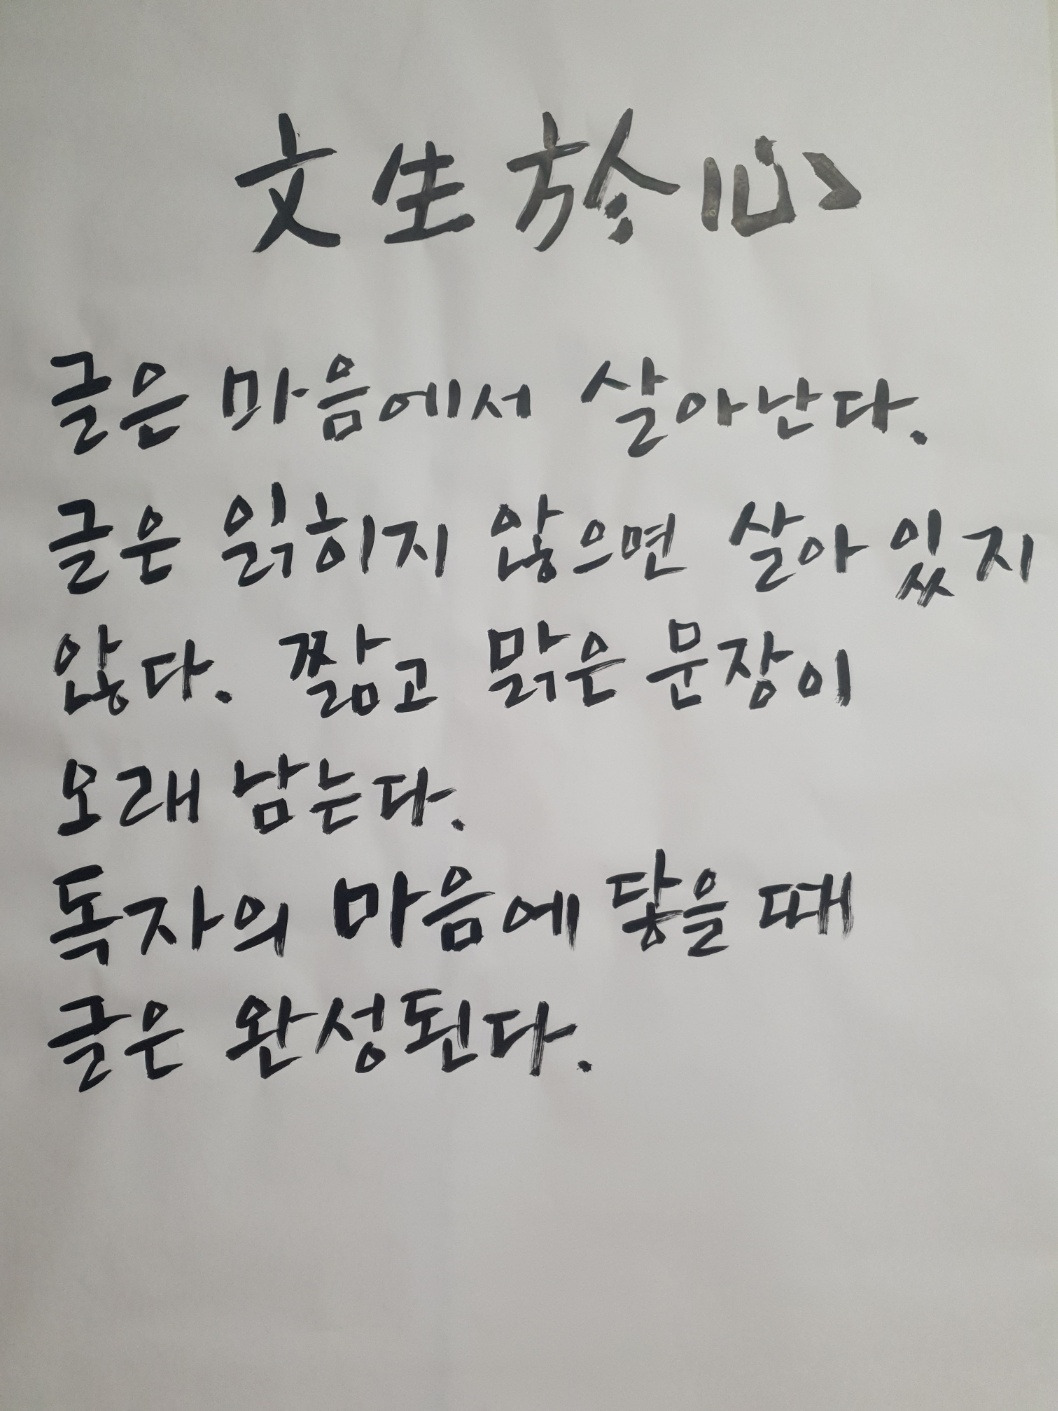 文生於心
글은 마음에서 살아난다.
글은 읽히지 않으면 살아있지
않다. 짧고 맑은 문장이
오래 남는다.
독자의 마음에 닿을 때
글은 완성된다.